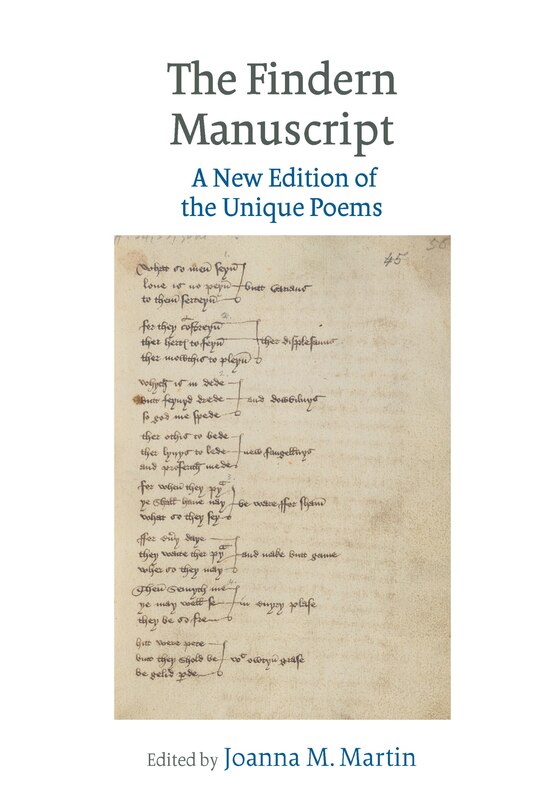 The Findern
Manuscript
A New Edition of
the Unique Poems
45
56
What so men seyn
love is no peyn
to them serteyn
butt varians
for they constreyn
ther hertes to feyn
ther mowthis to pleyn
ther displesauns
whych is in dede
butt feynyd drede
so god me spede
and dowbilnys
ther othis to bede
ther lyvys to lede
and proferith mede
new fangellnys
for when they pray
ye shall have nay
what so they sey
be ware ffor sham
ffor every daye
they waite ther pray
wher so they may
and make butt game
Then semyth me
ye may well se
they be so fre
in evyry plase
hitt were pete
butt they shold be
be gelid parde
wt owtyn grase
Edited by Joanna M. Martin